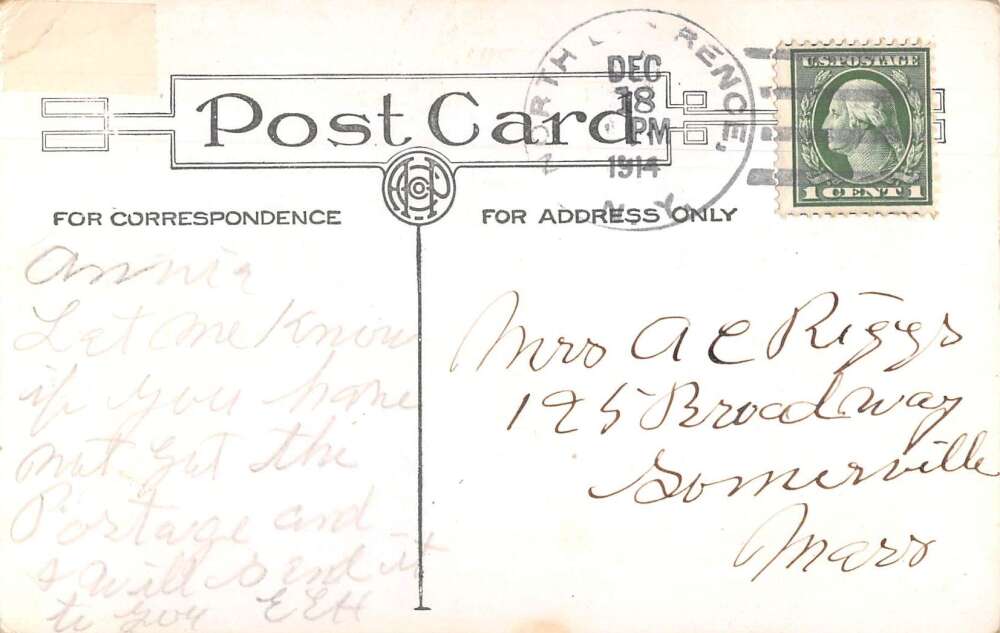 Post Card
FOR CORRESPONDENCE
FOR ADDRESS ONLY
NORTH RENCE,
DEC
18
PM
1914
N.Y.
U.S. POSTAGE
1 CENT 1
Annie
Let me Know
if you have
not got the
Postage and
I will send it
to you EEH
Mrs A C Riggs
125 Broadway
Somerville
Mass